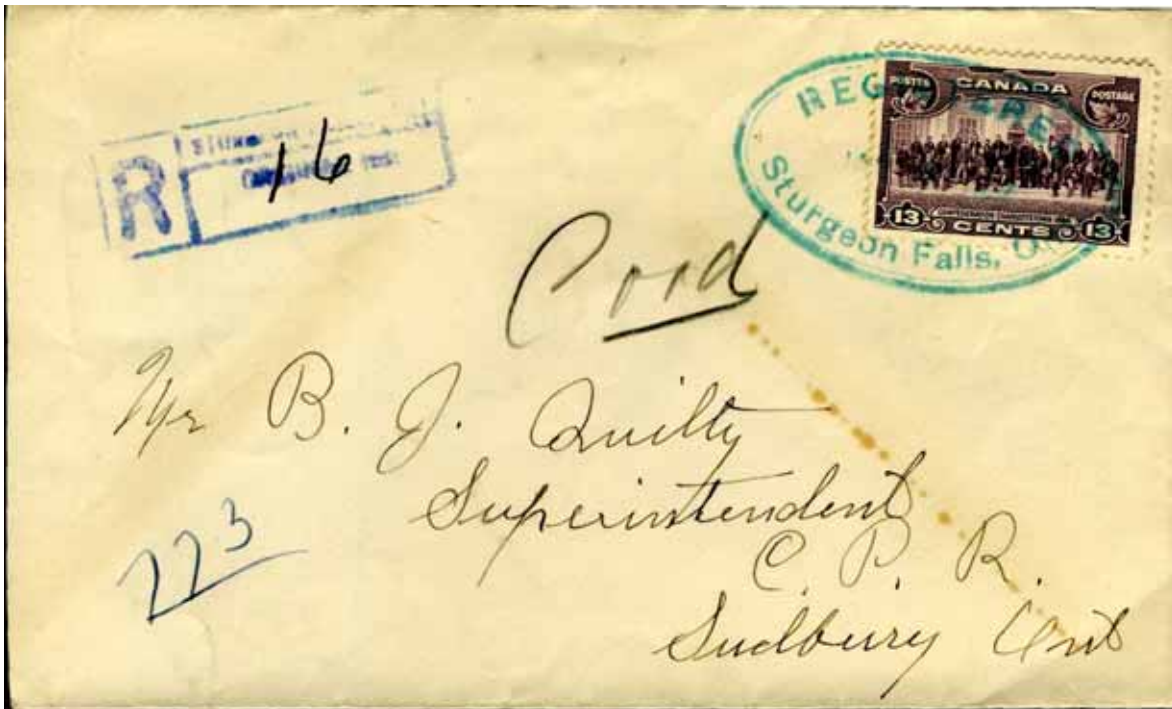 R
16
REGISTERED
Sturgeon Falls,
POSTES CANADA POSTAGE
13 CENTS 13
Mr B. J. Quilty
Superintendent
C. P. R.
Sudbury Ont
223